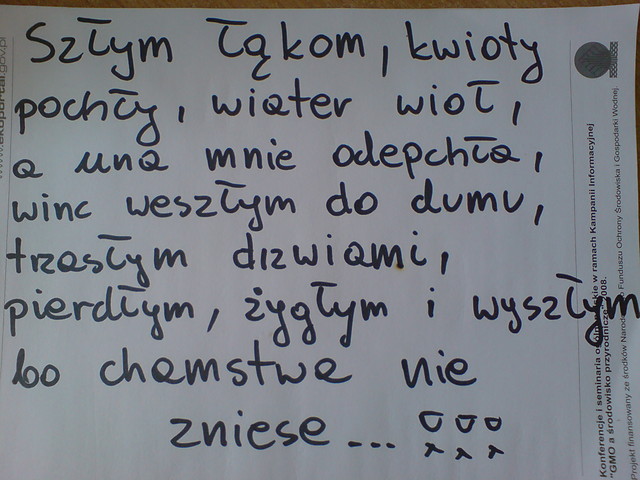 Szłym łąkom, kwioty
pochły, wiater wioł,
a una mnie odepchła,
winc weszłym do dumu,
trzasłym drzwiami,
pierdłym, żygłym i wyszłym
bo chamstwa nie
zniese...
Konferencje i seminaria
w ramach Kampanii Informacyjnej
"GMO a środowisko przyrodnicze" 2008.
Projekt finansowany ze środków
Funduszu Ochrony Środowiska i Gospodarki Wodnej